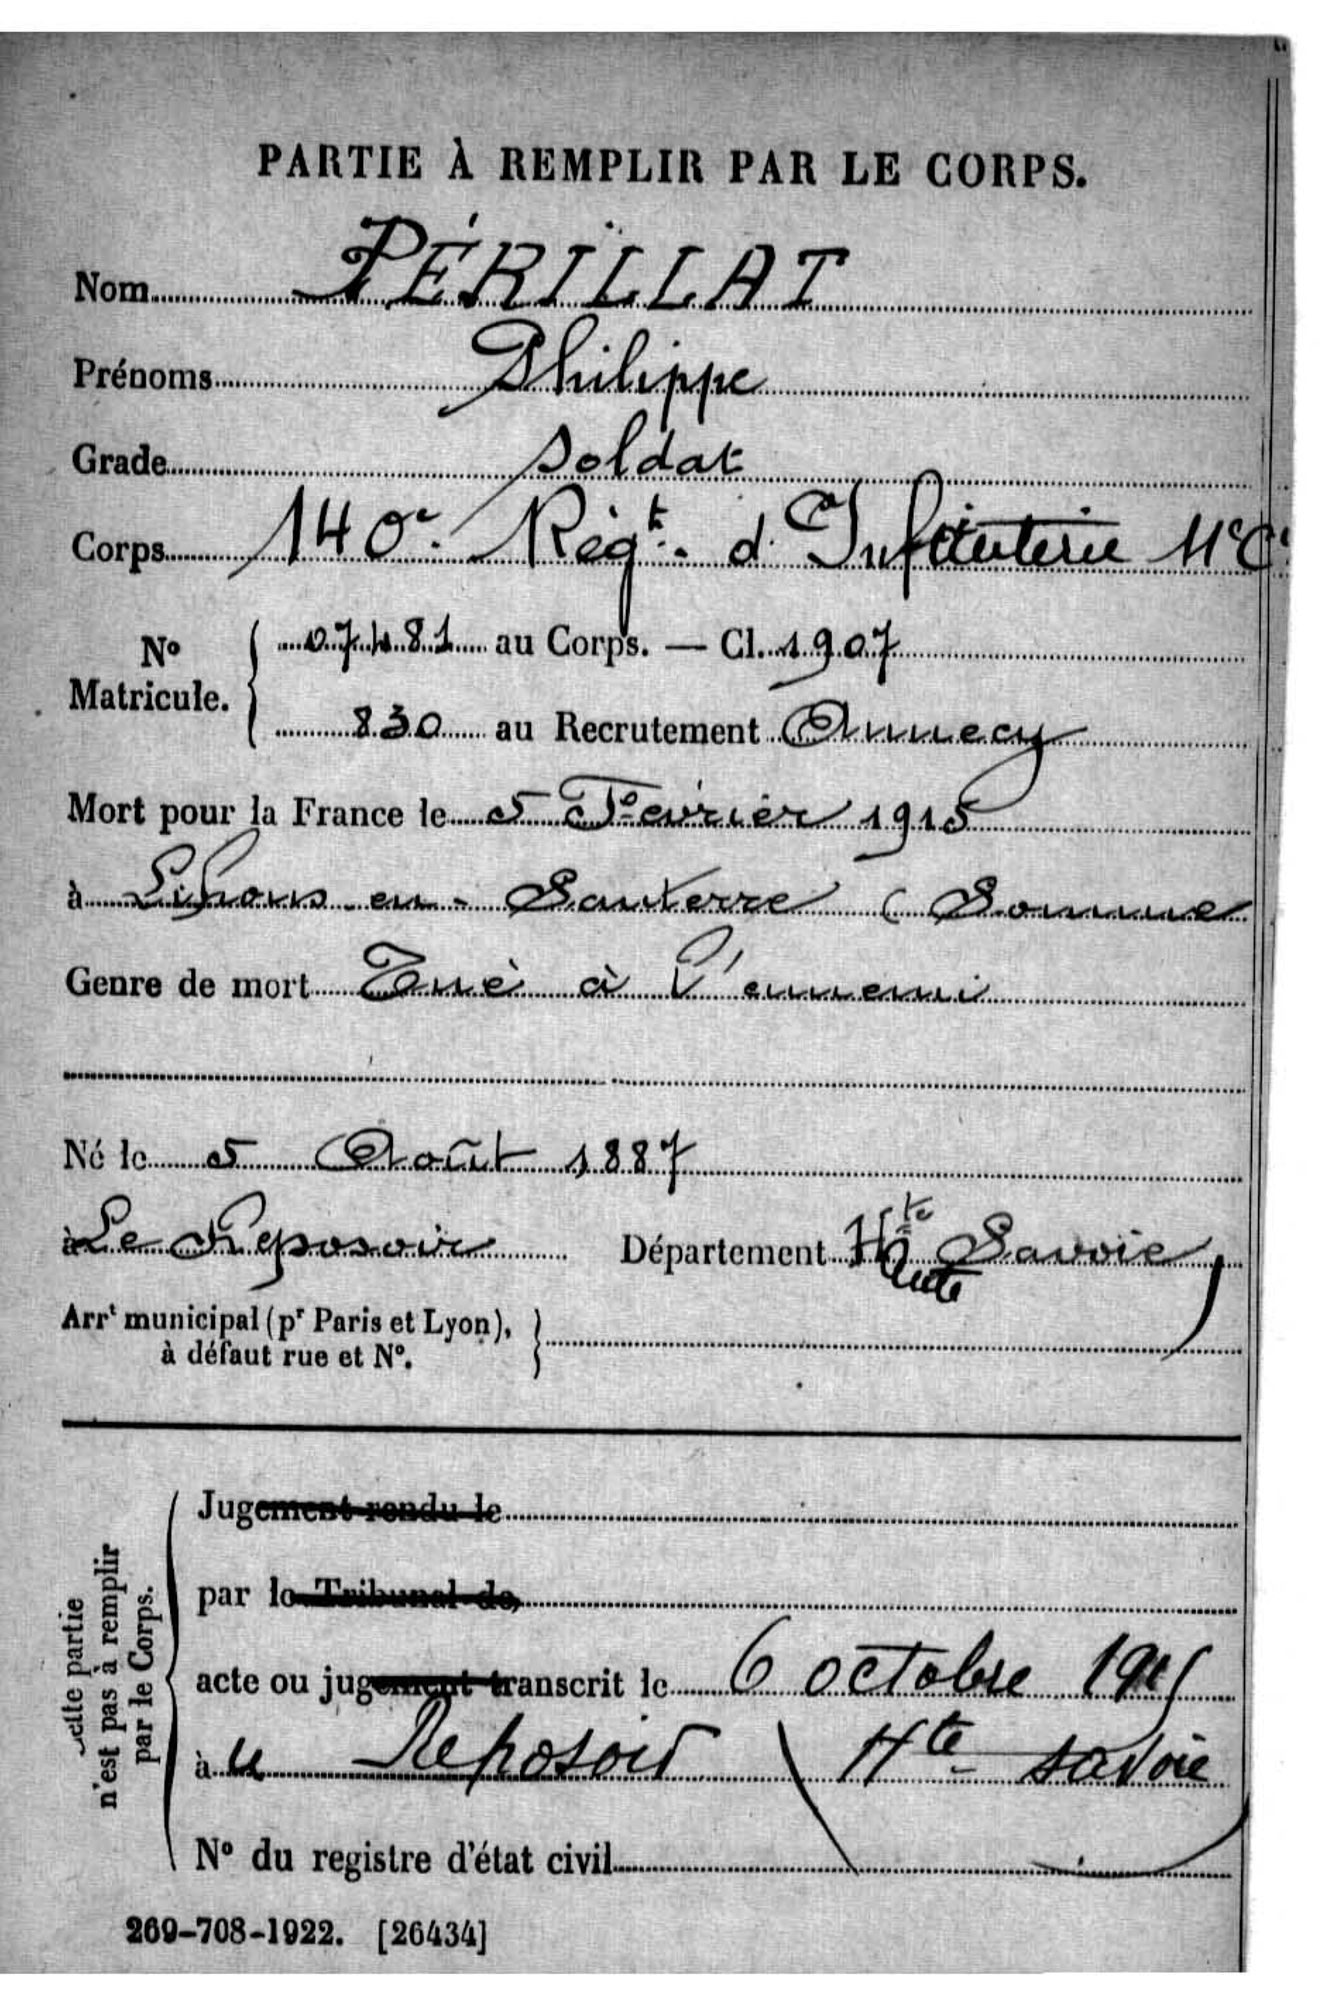 PARTIE À REMPLIR PAR LE CORPS.
Nom PÉRILLAT
Prénoms Philippe
Grade Soldat
Corps 140e Régt d'Infanterie 11e Cie
No Matricule. 07481 au Corps. — Cl. 1907
830 au Recrutement Annecy
Mort pour la France le 5 Février 1915
à Lihons-en-Santerre (Somme
Genre de mort Tué à l'ennemi
Né le 5 Août 1887
à Le Reposoir Département Hte Savoie
Haute
Arrt municipal (pr Paris et Lyon),
à défaut rue et No.
Cette partie
n'est pas à remplir
par le Corps.
Jugement rendu le
par le Tribunal de
acte ou jugement transcrit le 6 octobre 1915
à le Reposoir Hte Savoie
No du registre d'état civil
269-708-1922. [26434]